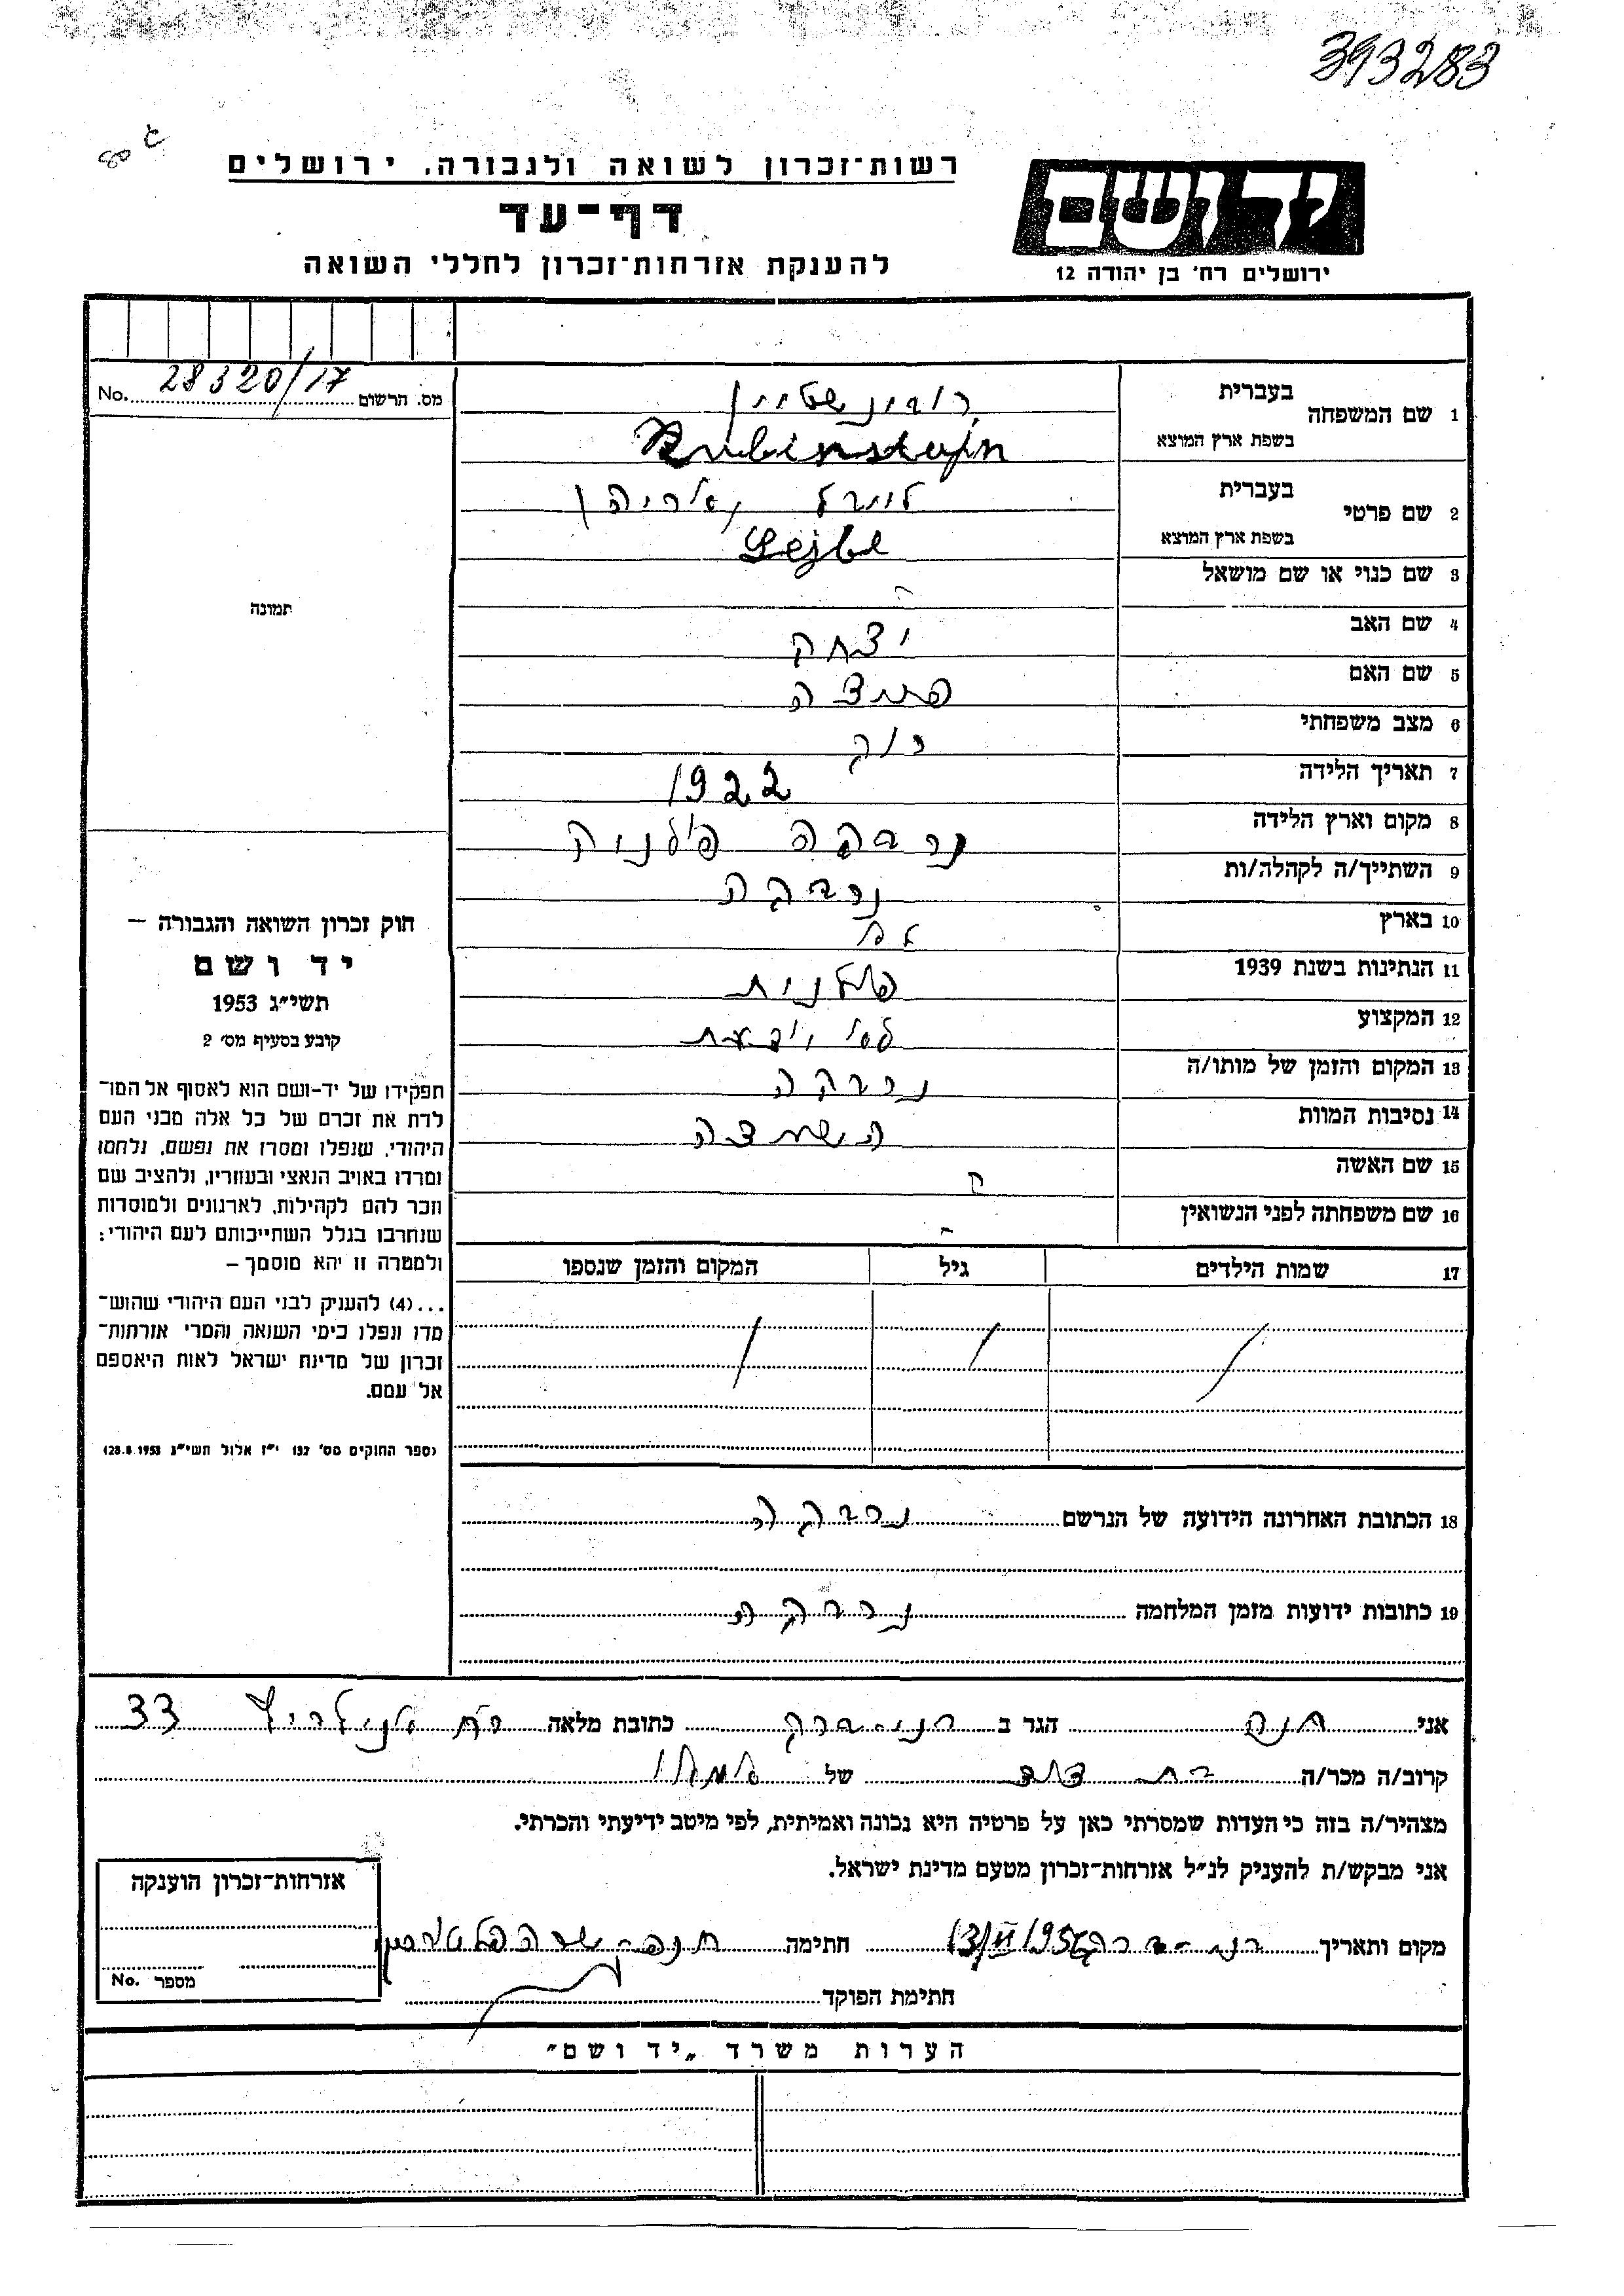 393283
רשות־זכרון לשואה ולגבורה. ירושלים
דף־עד
להענקת אזרחות־זכרון לחללי השואה
יד ושם
ירושלים רח' בן יהודה 12
No. 28320/17 מס. הרשום
1 שם המשפחה
בעברית רובינשטיין
בשפת ארץ המוצא Rubinstajn
2 שם פרטי
בעברית לייבל (אריה)
בשפת ארץ המוצא Lejbl
3 שם כנוי או שם מושאל
4 שם האב יצחק
5 שם האם
6 מצב משפחתי רוק
7 תאריך הלידה 1922
8 מקום וארץ הלידה נרבקה פולניה
9 השתייך/ה לקהלה/ות נרבקה
10 בארץ
11 הנתינות בשנת 1939 פולנית
12 המקצוע
13 המקום והזמן של מותו/ה נרבקה
14 נסיבות המוות
15 שם האשה
16 שם משפחתה לפני הנשואין
17 שמות הילדים גיל המקום והזמן שנספו
תמונה
חוק זכרון השואה והגבורה –
יד ושם
תשי״ג 1953
קובע בסעיף מס׳ 2
תפקידו של יד-ושם הוא לאסוף אל המו־
לדת את זכרם של כל אלה מבני העם
היהודי, שנפלו ומסרו את נפשם, נלחמו
ומרדו באויב הנאצי ובעוזריו, ולהציב שם
וזכר להם לקהילות, לארגונים ולמוסדות
שנחרבו בגלל השתייכותם לעם היהודי;
ולמטרה זו יהא מוסמך –
...(4) להעניק לבני העם היהודי שהוש־
מדו ונפלו בימי השואה והמרי אזרחות־
זכרון של מדינת ישראל לאות היאספם
אל עמם.
(ספר החוקים מס׳ 132 י״ז אלול תשי״ג 28.8.1953)
18 הכתובת האחרונה הידועה של הנרשם נרבקה
19 כתובות ידועות מזמן המלחמה נרבקה
אני חנה הגר ב בני-ברק כתובת מלאה 33
קרוב/ה מכר/ה בת דוד של
מצהיר/ה בזה כי העדות שמסרתי כאן על פרטיה היא נכונה ואמיתית, לפי מיטב ידיעתי והכרתי.
אני מבקש/ת להעניק לנ״ל אזרחות־זכרון מטעם מדינת ישראל.
מקום ותאריך בני-ברק חתימה
חתימת הפוקד
אזרחות־זכרון הוענקה
No. מספר
הערות משרד „יד ושם״